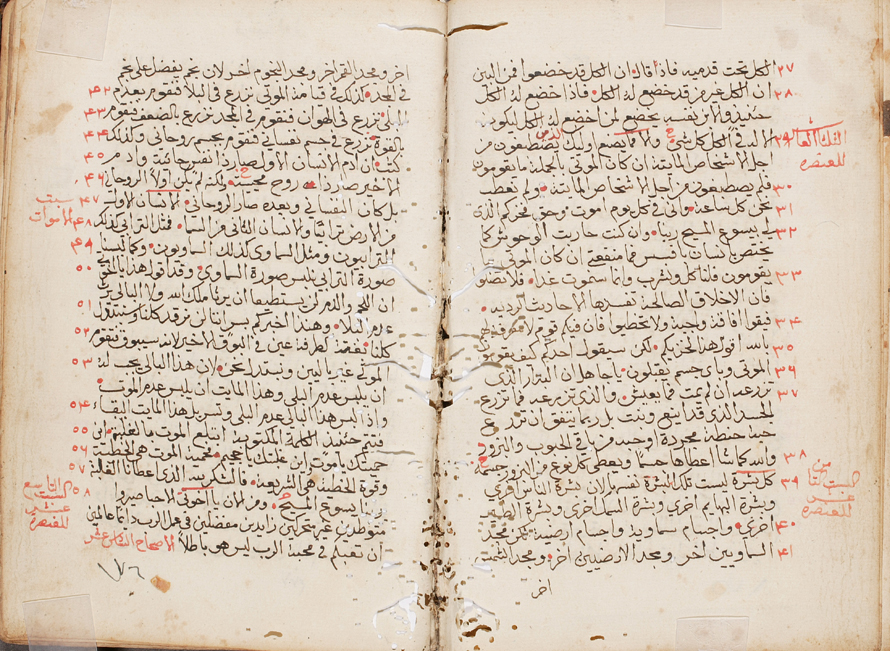 ٢٧ الكل تحت قدميه فاذا قال ان الكل قد خضعوا فمن البين
٢٨ ان الكل غير من قد خضع له الكل فاذا خضع له الكل
حينيذ والابن نفسه يخضع لمن اخضع له الكل ليكون
٢٩ الله في الكل كل شي والا فما يصنع اوليك يصطبغون من
اجل الاشخاص المايتة ان كان الموتى بالجملة ما يقومون
٣٠ فلم يصطبغون من اجل الاشخاص المايتة ولم نعطب
٣١ نحن كل ساعة واني في كل يوم اموت وحق فخركم الذي
٣٢ في يسوع المسيح ربنا وان كنت حاربت الوحوش كما
يختص بانسان بافسس فما منفعتي ان كان الموتى ما
٣٣ يقومون فلناكل ونشرب وانما سنموت غدا فلا تضلوا
فان الاخلاق الصالحة تفسدها الاحاديث الرديه
٣٤ فيقوا افاقة واجبة ولا تخطيوا فان فيكم قوم لا معرفة لهم
٣٥ بالله اقول هذا لخزيكم لكن سيقول احدكم كيف يقوم
٣٦ الموتى وباي جسم يقبلون يا جاهل ان البزار الذي
٣٧ تزرعه ان لم يمت فما يعيش والذي تزرعه فما تزرع
الجسد الذي قد اينع ونبت بل ربما يتفق ان تزرع
حبة حنطة مجردة او حبة من باقي الحبوب والبزور
٣٨ والله كما شا اعطاها جسما ويعطي كل نوع من البزور جسمه
٣٩ كل بشرة ليست تلك البشرة نفسها لان بشرة الناس اخرى
وبشرة البهايم اخرى وبشرة السمك اخرى وبشرة الطير
٤٠ اخرى واجسام سماوية واجسام ارضية لكن مجد
٤١ السماويين اخر ومجد الارضيين اخر ومجد الشمس
اخر
للعنصرة
من السبت
عشر
للعنصرة
اخر ومجد القمر اخر ومجد النجوم اخر لان نجم يفضل على نجم
٤٢ في المجد لذلك في قيامة الموتى تزرع في البلا فتقوم بعدم
٤٣ البلى تزرع في الهوان فتقوم في المجد تزرع بالضعف فتقوم
٤٤ بالقوة تزرع في جسم نفساني فتقوم بجسم روحاني وكذلك
٤٥ كتب ان ادم الانسان الاول صار ذا نفس حاية وادم
٤٦ الاخير صار ذا روح محيية ولكنه لم يكن اولا الروحاني
٤٧ بل كان النفساني وبعده صار الروحاني الانسان الاول
٤٨ من الارض ترابيا والانسان الثاني من السما فمثل الترابي كذلك
٤٩ الترابيون ومثل السماوي كذلك السماويون وكما لبسنا
٥٠ صورة الترابي نلبس صورة السماوي وقد اقول هذا يا اخوتي
ان اللحم والدم لن يستطيعا ان يرثا ملك الله ولا البالي يرث
٥١ عدم البلاء وهذا اخبركم بسر اننا لن نرقد كلنا وسننتقل
٥٢ كلنا بغتة كطرفة عين في البوق الاخير لانه سيبوق فتقوم
٥٣ الموتى غير باليين ونستبدل نحن لان هذا البالي يجب له
ان يلبس عدم البلى وهذا المايت ان يلبس عدم الموت
٥٤ واذا لبس هذا البالي عدم البلى وتسربل هذا المايت البقاء
٥٥ فتتم حينيذ الكلمة المكتوبة ابتلع الموت بالغلبة اين
٥٦ حميتك يا موت اين غلبتك يا جحيم فحمية الموت هي الخطية
٥٧ وقوة الخطية هي الشريعة فالشكر لله الذي اعطانا الغلبة
٥٨ بربنا يسوع المسيح ومن الان يا اخوتي الاحبا صيروا
متوطدين غير متحركين زايدين مفضلين في عمل الرب دايما عالمين
ان تعبكم في محبة الرب ليس هو باطلا الاصحاح السادس عشر
سبت
الاموات
السبت التاسع
عشر
للعنصرة